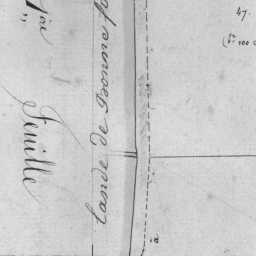 1ère
Feuille
Lande de Bonne fo
47.
100
a